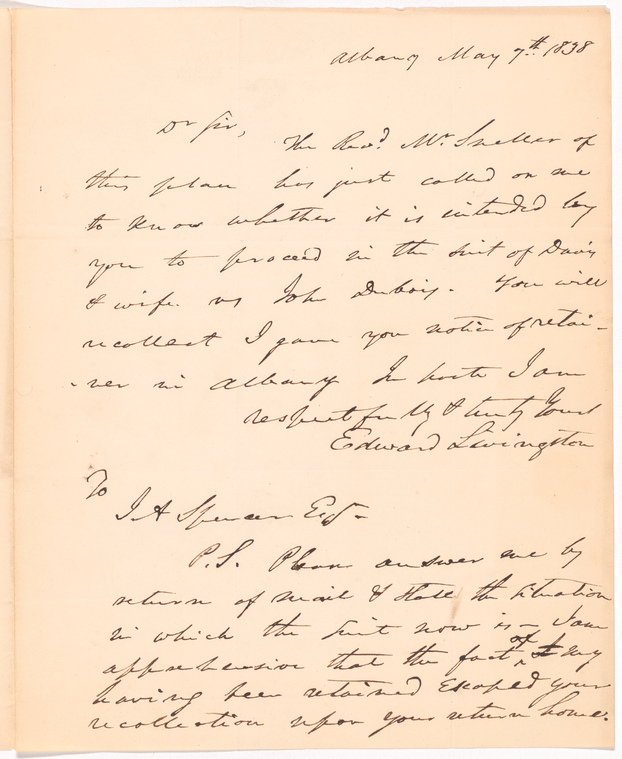 Albany May 7th 1838
Dr Sir,
The Revd Mr. Sneller of
this place has just called on me
to know whether it is intended by
you to proceed in the suit of Davis
& wife vs John Dubois. You will
recollect I gave you notice of retai-
-ner in Albany In haste I am
respectfully & truly Yours
Edward Livingston
To
J A Spencer Esqr
P.S. Please answer me by
return of mail & state the situation
in which the suit now is - I am
apprehensive that the fact of my
having been retained Escaped your
recollection upon your return home.